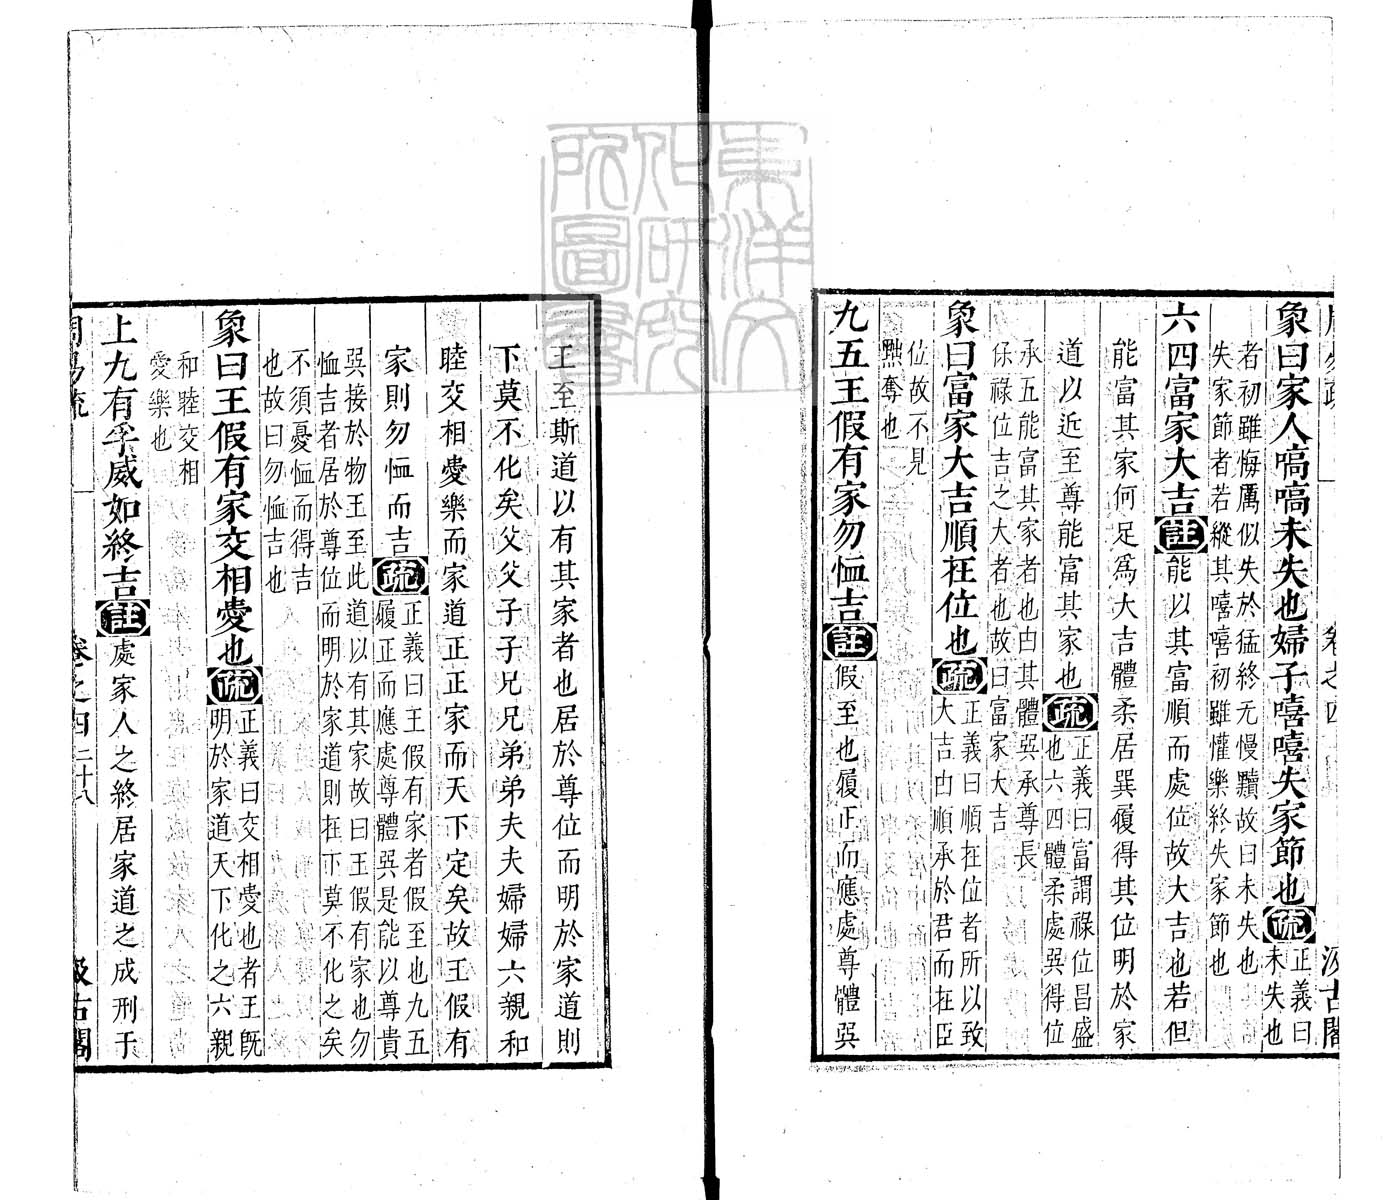 象曰家人嗃嗃未失也婦子嘻嘻失家節也疏正義曰
未失也
者初雖悔厲似失於猛終无慢黷故曰未失也
失家節者若縱其嘻嘻初雖懽樂終失家節也
六四富家大吉註能以其富順而處位故大吉也若但
能富其家何足爲大吉體柔居巽履得其位明於家
道以近至尊能富其家也疏正義曰富謂祿位昌盛
也六四體柔處巽得位
承五能富其家者也由其體巽承尊長
保祿位吉之大者也故曰富家大吉
象曰富家大吉順在位也疏正義曰順在位者所以致
大吉由順承於君而在臣
位故不見
黜奪也
九五王假有家勿恤吉註假至也履正而應處尊體巽
王至斯道以有其家者也居於尊位而明於家道則
下莫不化矣父父子子兄兄弟弟夫夫婦婦六親和
睦交相愛樂而家道正正家而天下定矣故王假有
家則勿恤而吉疏正義曰王假有家者假至也九五
履正而應處尊體巽是能以尊貴
巽接於物王至此道以有其家故曰王假有家也勿
恤吉者居於尊位而明於家道則在下莫不化之矣
不須憂恤而得吉
也故曰勿恤吉也
象曰王假有家交相愛也疏正義曰交相愛也者王既
明於家道天下化之六親
和睦交相
愛樂也
上九有孚威如終吉註處家人之終居家道之成刑于
周易疏 卷之四 二十八 汲古閣
東洋文
化研究
所圖書